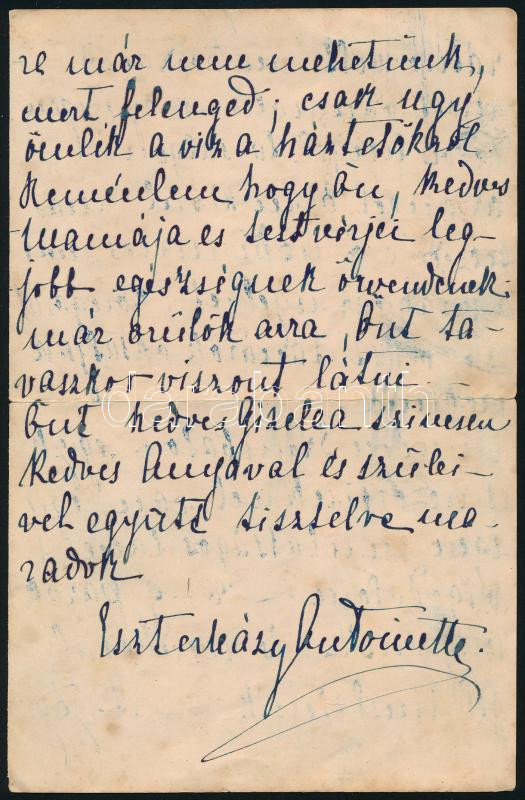 re már nem mehetünk,
mert felenged; csak ugy
ömlik a viz a háztetőkről
Remélem hogy Ön, kedves
Mamája es testvérjei leg-
jobb egészségnek örvendenek.
már örülök arra, Önt ta-
vaszkor viszont látni.
Önt kedves Gizella szivesen
Kedves Anyával és szülei-
vel együtt tisztelve ma-
radok
Eszterházy Antoinette.
darabanth